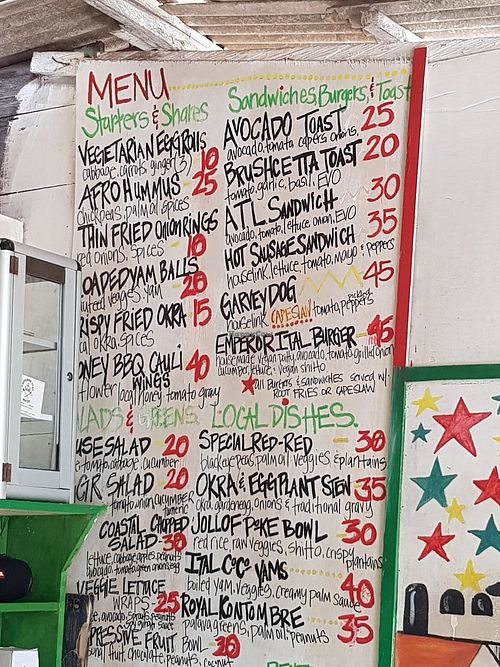 MENU
Starters & Shares
VEGETARIAN EGGROLLS
cabbage, carrots, ginger (3) 10
AFRO HUMMUS - 25
chickpeas, palm oil, spices
THIN FRIED ONION RINGS
red onions, spices - 10
OADED YAM BALLS
veggies, yam - 20
RISPY FRIED OKRA 15
okra, spices
NEY BBQ CAULI 40
WINGS
flower, local honey, tomato gravy
LADS & GREENS.
USE SALAD - 20
tomato, cabbage, cucumber
GR SALAD - 20
tomato, onion, cucumber
turmeric
COASTAL CHOPPED
SALAD - 30
lettuce, cabbage, apples, peanuts
avocado, tomato, green onion, egg
VEGGIE LETTUCE
WRAPS - 25
PRESSIVE FRUIT BOWL - 20
fruit, chocolate, peanuts, coconut
Sandwiches, Burgers, & Toast
AVOCADO TOAST 25
avocado, tomato, capers, onions
BRUSHCETTA TOAST 20
tomato, garlic, basil, EVO
ATL SANDWICH 30
avocado, tomato, lettuce, onion, EVO
HOT SAUSAGE SANDWICH 35
houselink, lettuce, tomato, mayo & peppers
GARVEY DOG 45
houselink, CAPESLAW, tomato, pickled peppers
EMPEROR ITAL BURGER - 45
housemade vegan patty, avocado, tomato, grilled onion
cucumber, lettuce, & vegan shitto
all Burgers & Sandwiches served w/
ROOT FRIES OR CAPESLAW
LOCAL DISHES.
SPECIAL RED-RED - 30
blackeye peas, palm oil, veggies, & plantains
OKRA & EGGPLANT STEW 35
okra, garden egg, onions & traditional gravy
JOLLOF POKE BOWL - 30
red rice, raw veggies, shitto, crispy plantains
ITAL COCO YAMS
boiled yam, veggies, creamy palm sauce 40
ROYAL KONTOMBRE
palava greens, palm oil, peanuts 35